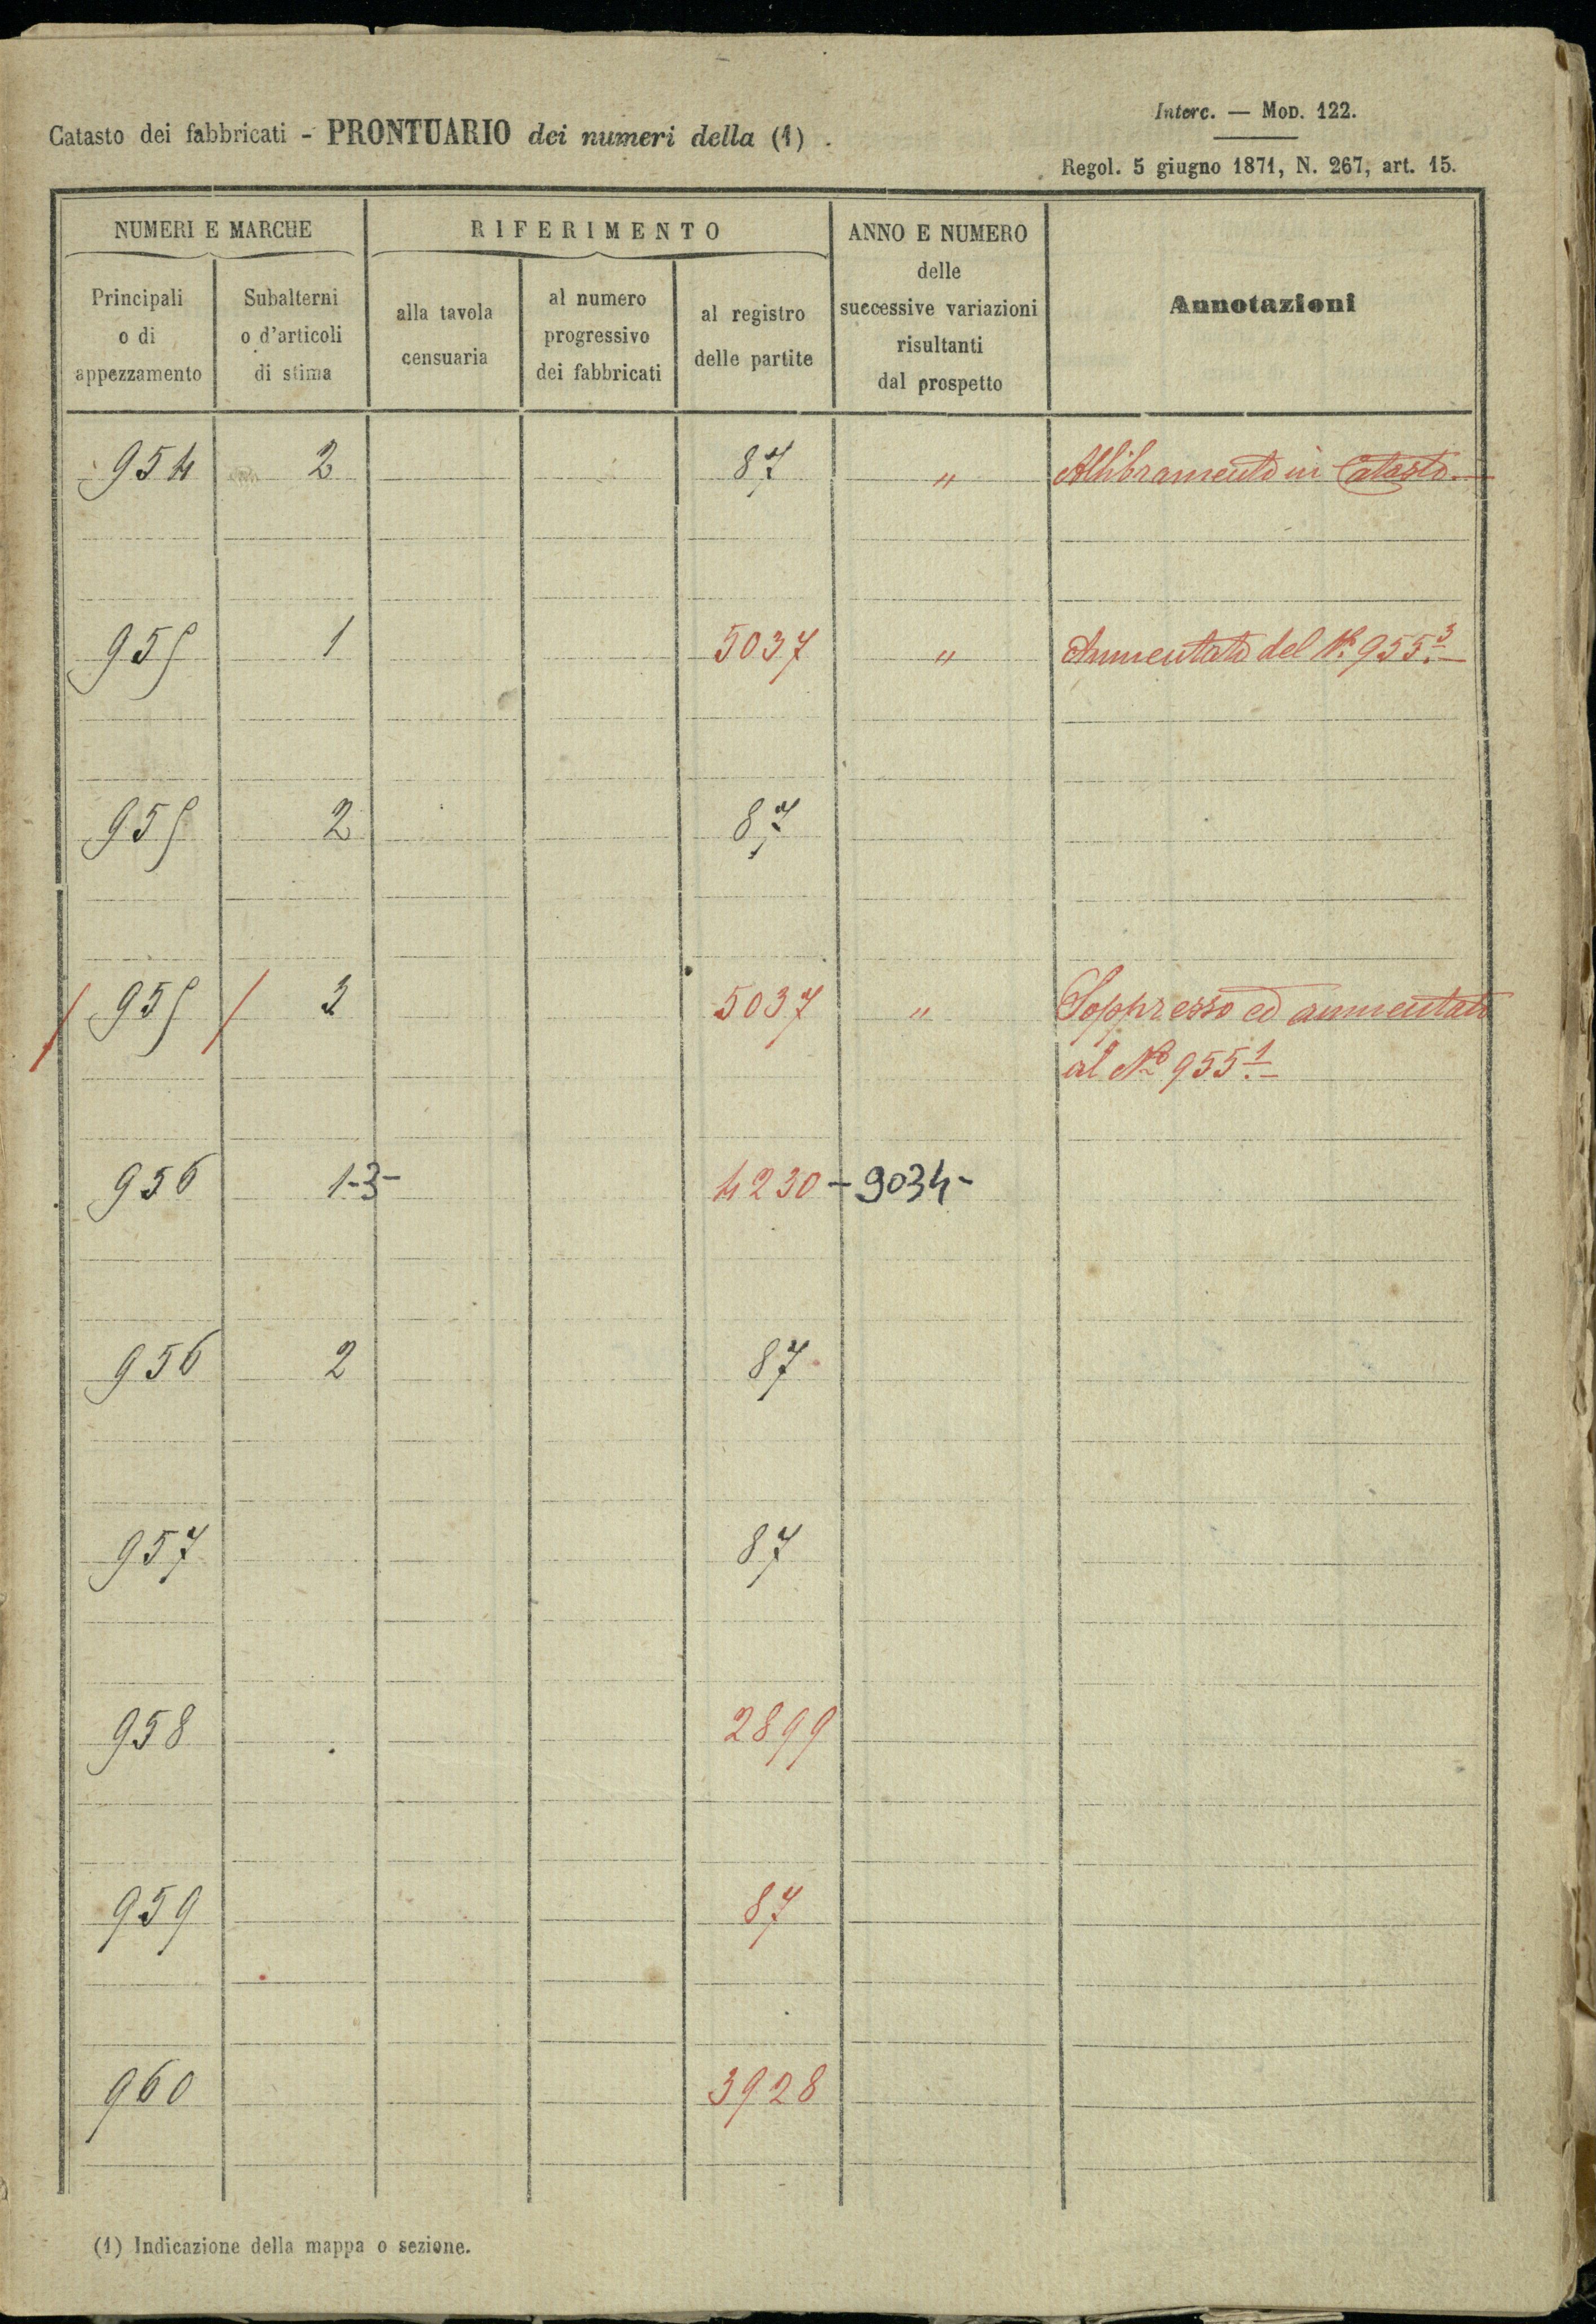 Catasto dei fabbricati - PRONTUARIO dei numeri della (1) .
Interc. — MOD. 122.
Regol. 5 giugno 1871, N. 267, art. 15.
NUMERI E MARCHE
RIFERIMENTO
ANNO E NUMERO
delle
successive variazioni
risultanti
dal prospetto
Annotazioni
Principali
o di
appezzamento
Subalterni
o d'articoli
di stima
alla tavola
censuaria
al numero
progressivo
dei fabbricati
al registro
delle partite
954 2 87 " Allibramento in Catasto.
955 1 5037 " Aumentato del N.º 955.3
955 2 87
/ 955 / 3 5037 " Soppresso ed aumentato
al Nº 955.1
956 1-3- 4230 - 9034-
956 2 87
957 87
958 2899
959 87
960 3928
(1) Indicazione della mappa o sezione.